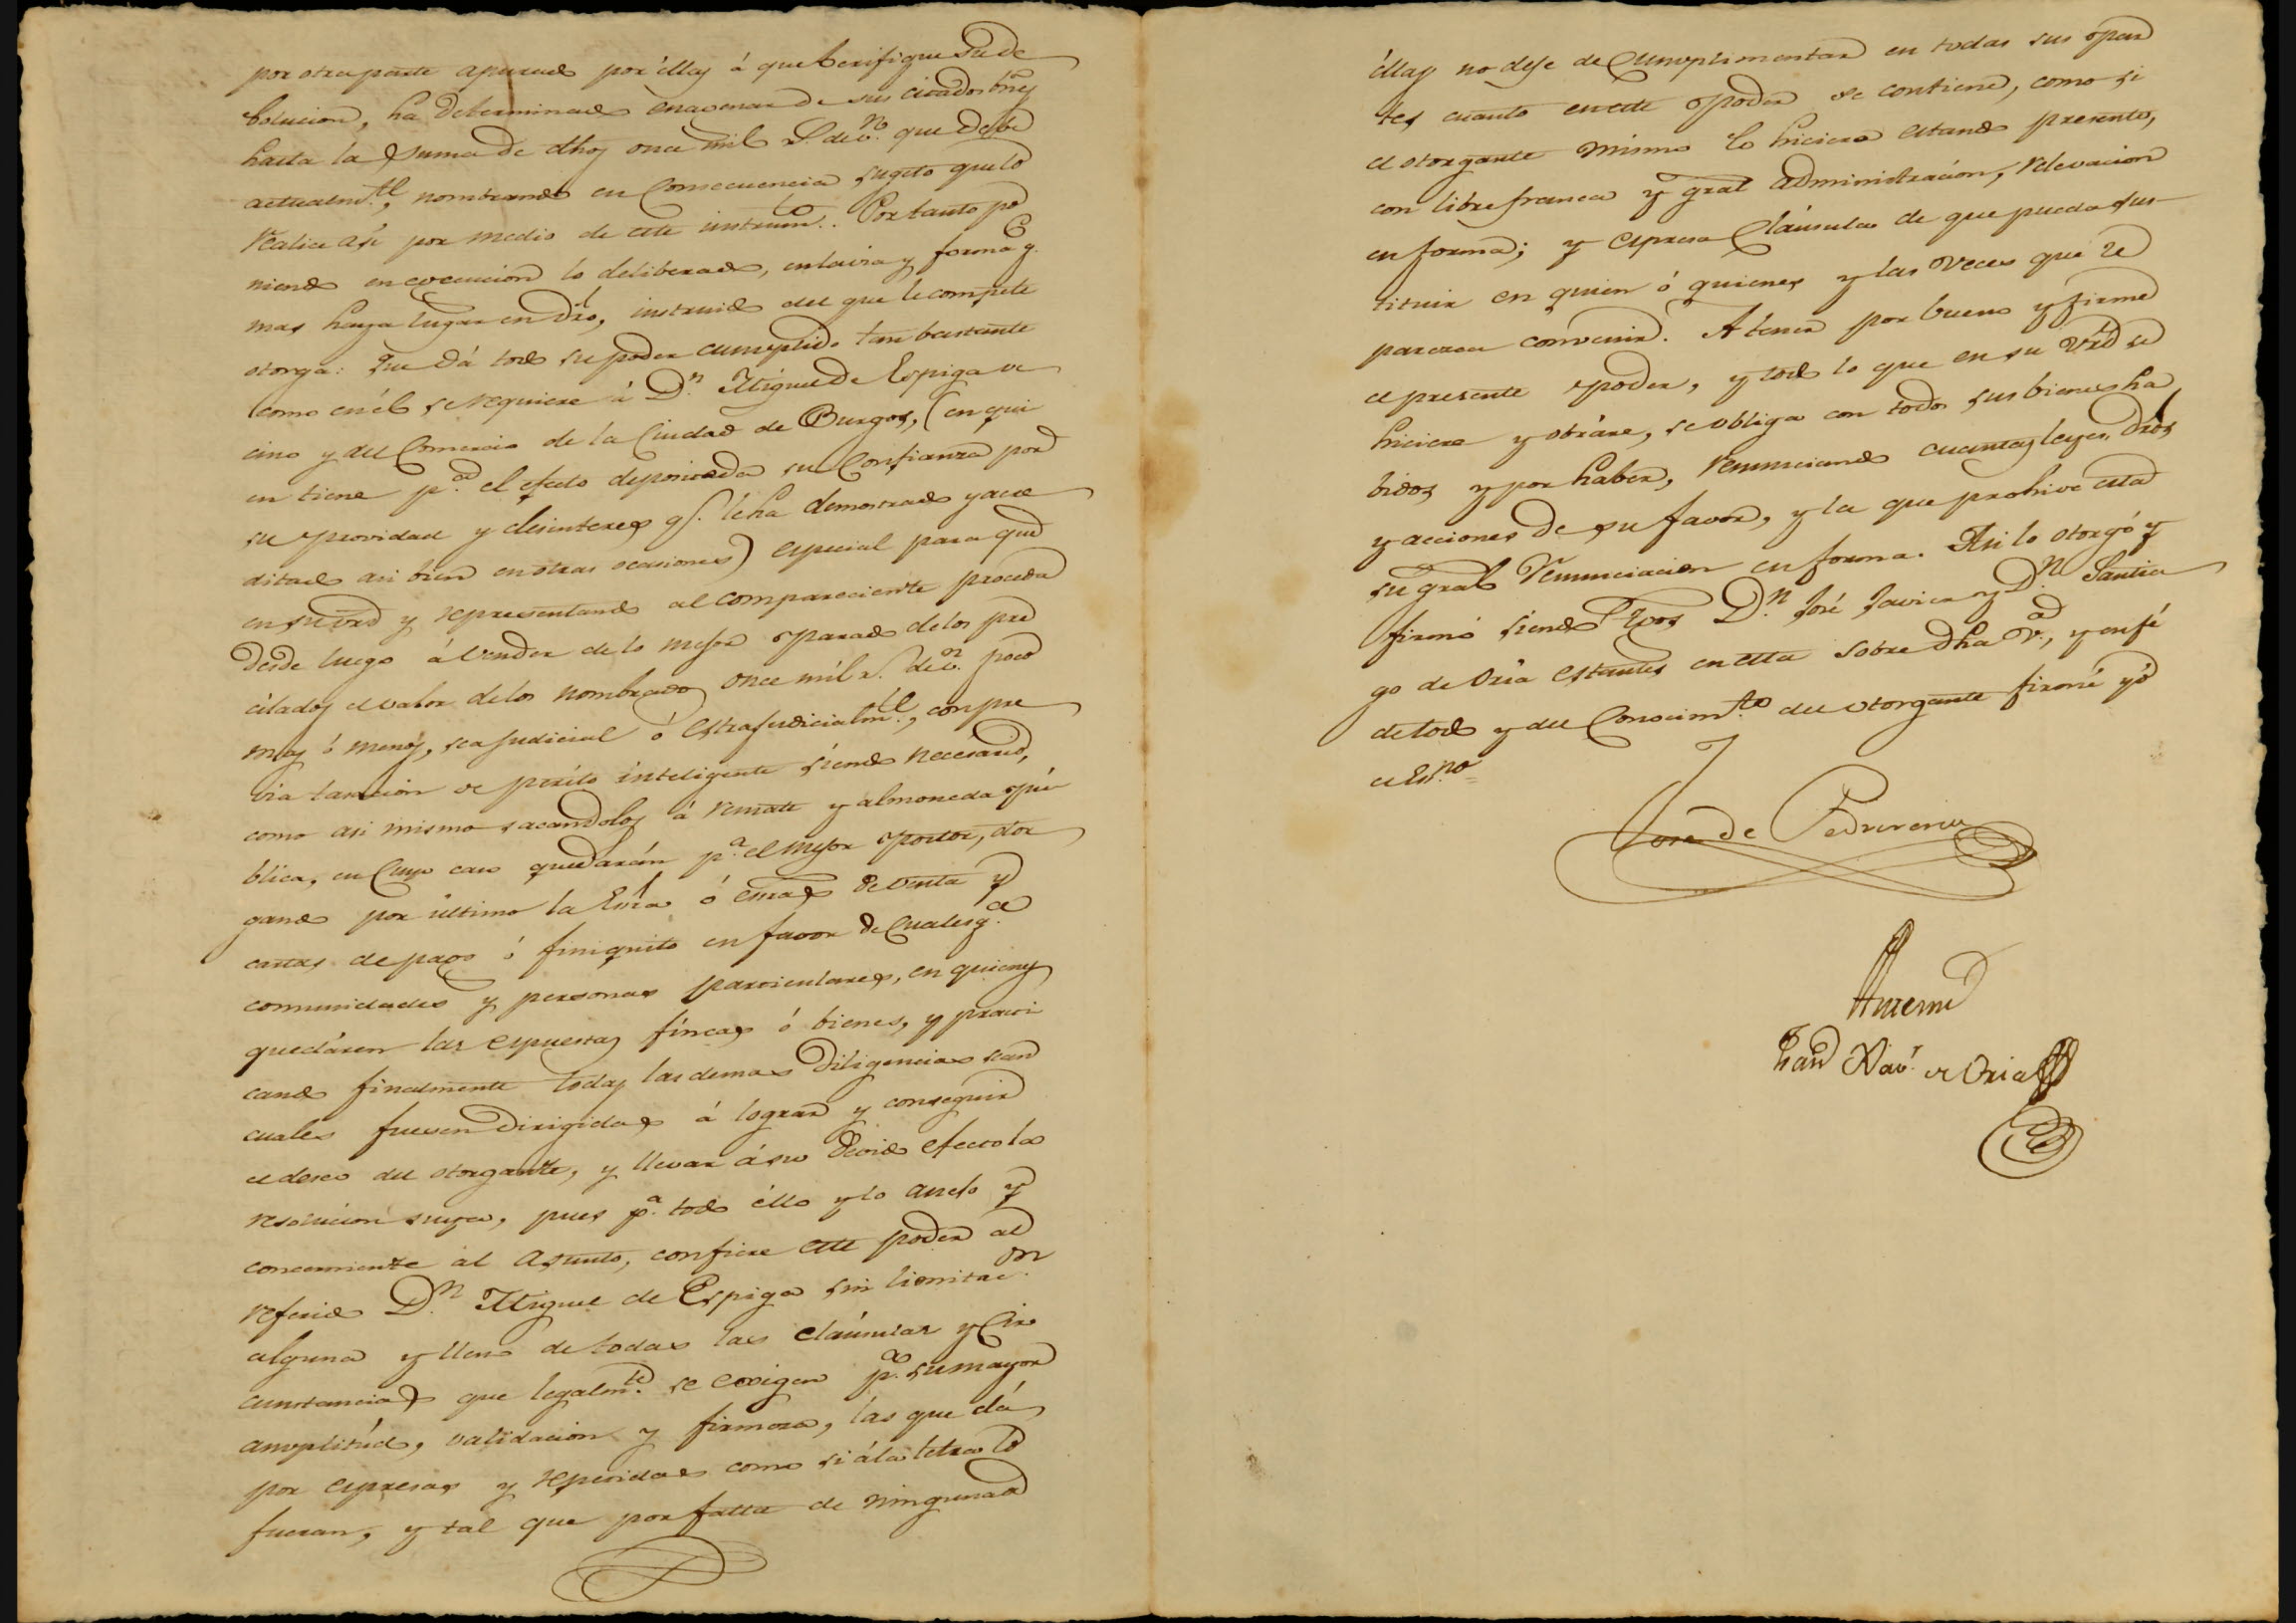 por otra parte apurado por éllas á que berifique su de
bolucion, ha determinado enagenar de sus citados bns
hasta la suma de dhos once mil rs. de vn. que debe
actualmte., nombrando en consecuencia sugeto que lo
realice asi por medio de este instrumto. Por tanto po
niendo en egecucion lo deliberado, en la via y forma q.e
mas haya lugar en dro, instruido del que le compete
otorga: Que dá todo su poder cumplido tan bastante
como en él se requiere á Dn. Miguel de Espiga ve
cino y del Comercio de la Ciudad de Burgos, (en qui
en tiene pa. el efecto depositada su confianza por
su providad y desinteres qe. le ha demostrado y acre
ditado asi bien en otras ocasiones) especial para que
en su vrd y representando al compareciente proceda
desde luego á vender de lo mejor parado de los pre
citados el valor de los nombrados once mil rs. de vn. poco
mas ó menos, sea judicial ó estrajudicialmte., con pre
via tasacion de perito inteligente siendo necesario,
como asi mismo sacandolos á remate y almoneda pú
blica, en cuyo caso quedarán pa. el mejor postor, otor
gando por último la Esra ó esras de venta y
cartas de pago ó finiquito en favor de cualesqa.
comunidades y personas particulares, en quienes
quedáren las espuestas fincas ó bienes, y practi
cando finalmente todas las demas diligencias sean
cuales fuesen dirigidas á lograr y conseguir
el deseo del otorgante, y llevar á su devido efecto la
resolucion suya, pues pa. todo éllo y lo anejo y
concerniente al asunto, confiere este poder al
referido Dn. Miguel de Espiga sin limitacon.
alguna y lleno de todas las cláusulas y cir
cunstancias que legalmte. se exigen pa. su mayor
amplitúd, validacion y firmeza, las que dá
por espresas y repetidas como si á la letra lo
fueran, y tal que por falta de ninguna de
éllas no deje de cumplimentar en todas sus par
tes cuanto en este poder se contiene, como si
el otorgante mismo lo hiciera estando presente,
con libre franca y gral administración, relevacion
en forma; y espresa cláusula de que pueda sus-
tituir en quien ó quienes y las veces que le
parezca convenir. A tener por bueno y firme
el presente poder, y todo lo que en su vrtd se
hiciere y obráre, se obliga con todos sus bienes ha
bidos y por haber, renunciando cuantas leyes, dros
y acciones de su favor, y la que prohive esta
su gral renunciacion en forma. Asi lo otorgó y
firmó siendo tgos Dn. José Javier y Dn. Santia
go de Oria estantes en esta sobre dha Va., y en fé
de todo y del conocimto. del otorgante firmé yó
el Esno.=
José de Pedrurena
Antemi
Franco Xavr. de Oria